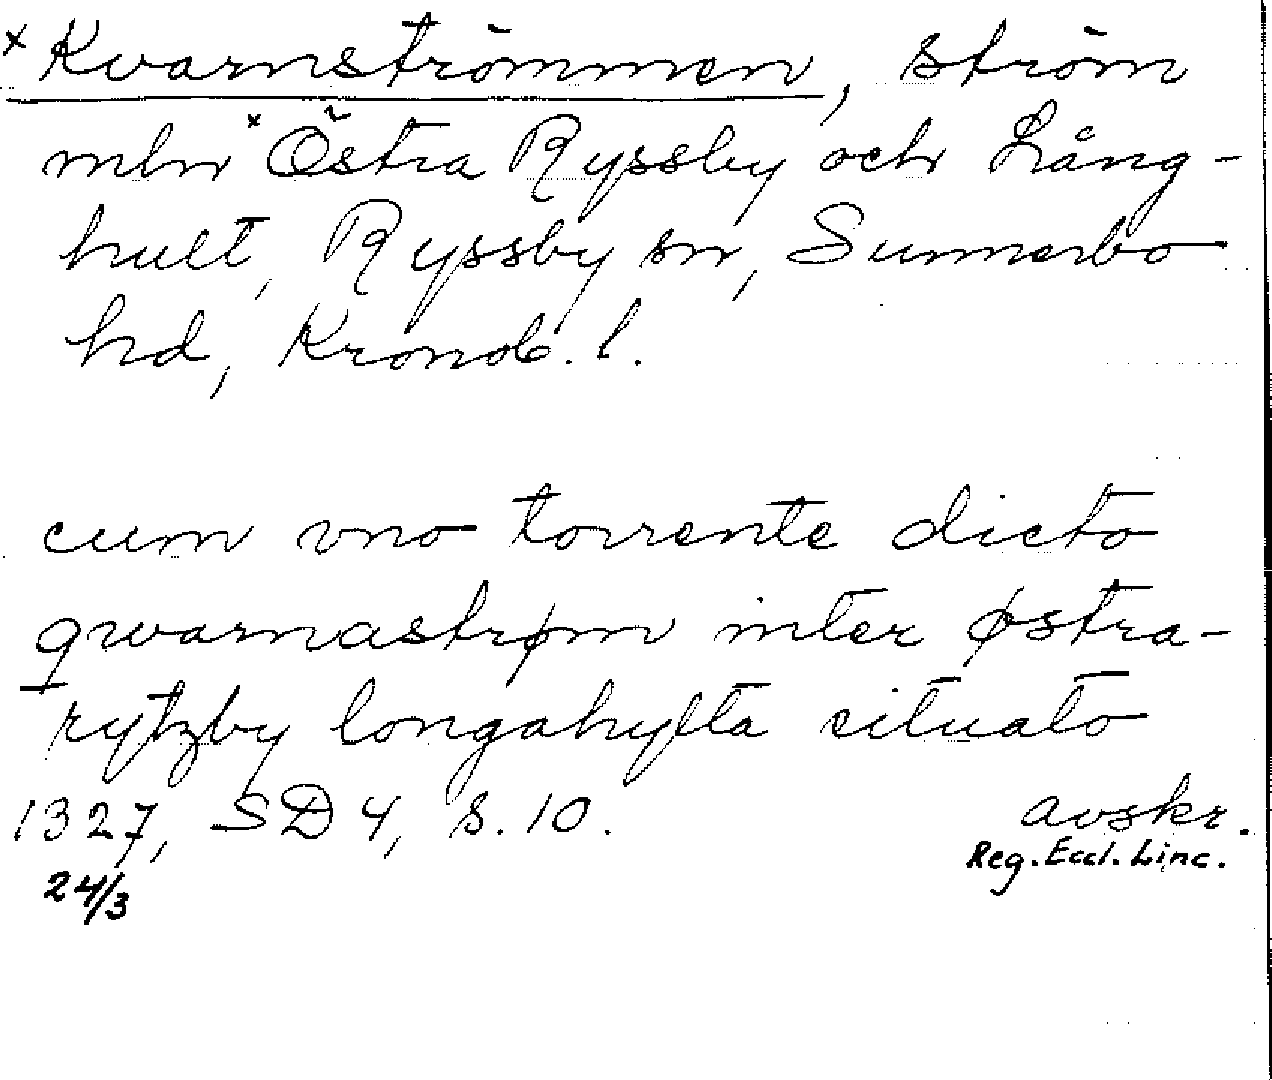 x Kvarnströmmen, ström
mln x Östra Ryssby och Lång-
hult, Ryssby sn, Sunnerbo
hd, Kronob. l.
cum vno torrente dicto
qwarnastrøm inter østra-
rytzby longahylta situato
1327, SD 4, s. 10. avskr.
Reg. Eccl. Linc.
24/3